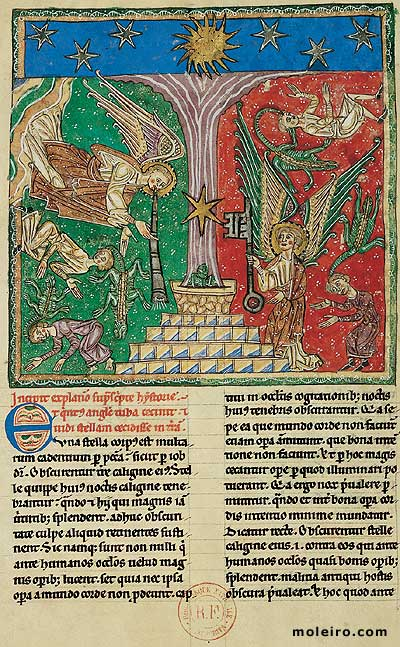 Incipit explatio supscpte hystorie
et quint' angls tuba cecinit et
uidi stellam cecidisse in tra
Una stella corp' est multa
rum cadentium p pcca. sicut p iob
dr. Obscurentur caligine ei'. Stel
le quippe huius noctis caligine tene
brantur. qndo et hij qui magnis iam
uirtutib; splendent. adhuc obscuri
tate culpe aliquid retinentes susti
nent. Sic namq; sunt non nulli qi
ante humanos oclos uelud mag
nis opib; lucent. set quia nec ipsa
opa a mundo corde non pdeunt. cap
tiui in occltis cogitationib; noctis
huius tenebris obscurantur. Et a se
pe ea que mundo corde non faciunt
etiam opa amittunt. que bona inten
tione non faciunt. et p hoc magis
opera p quod illuminari po
tuerant. Quia ergo nox pualere p
mittitur. quando et int bona opa cor
dis intentio minime mundatur.
Dicatur recte. Obscurentur stelle
caligine eius. i. contra eos qui ante
humanos oclos quasi bonis opib;
splendent. malitia antiqui hostis
obscura pualeat. et hoc quod ante
R.F.
moleiro.com